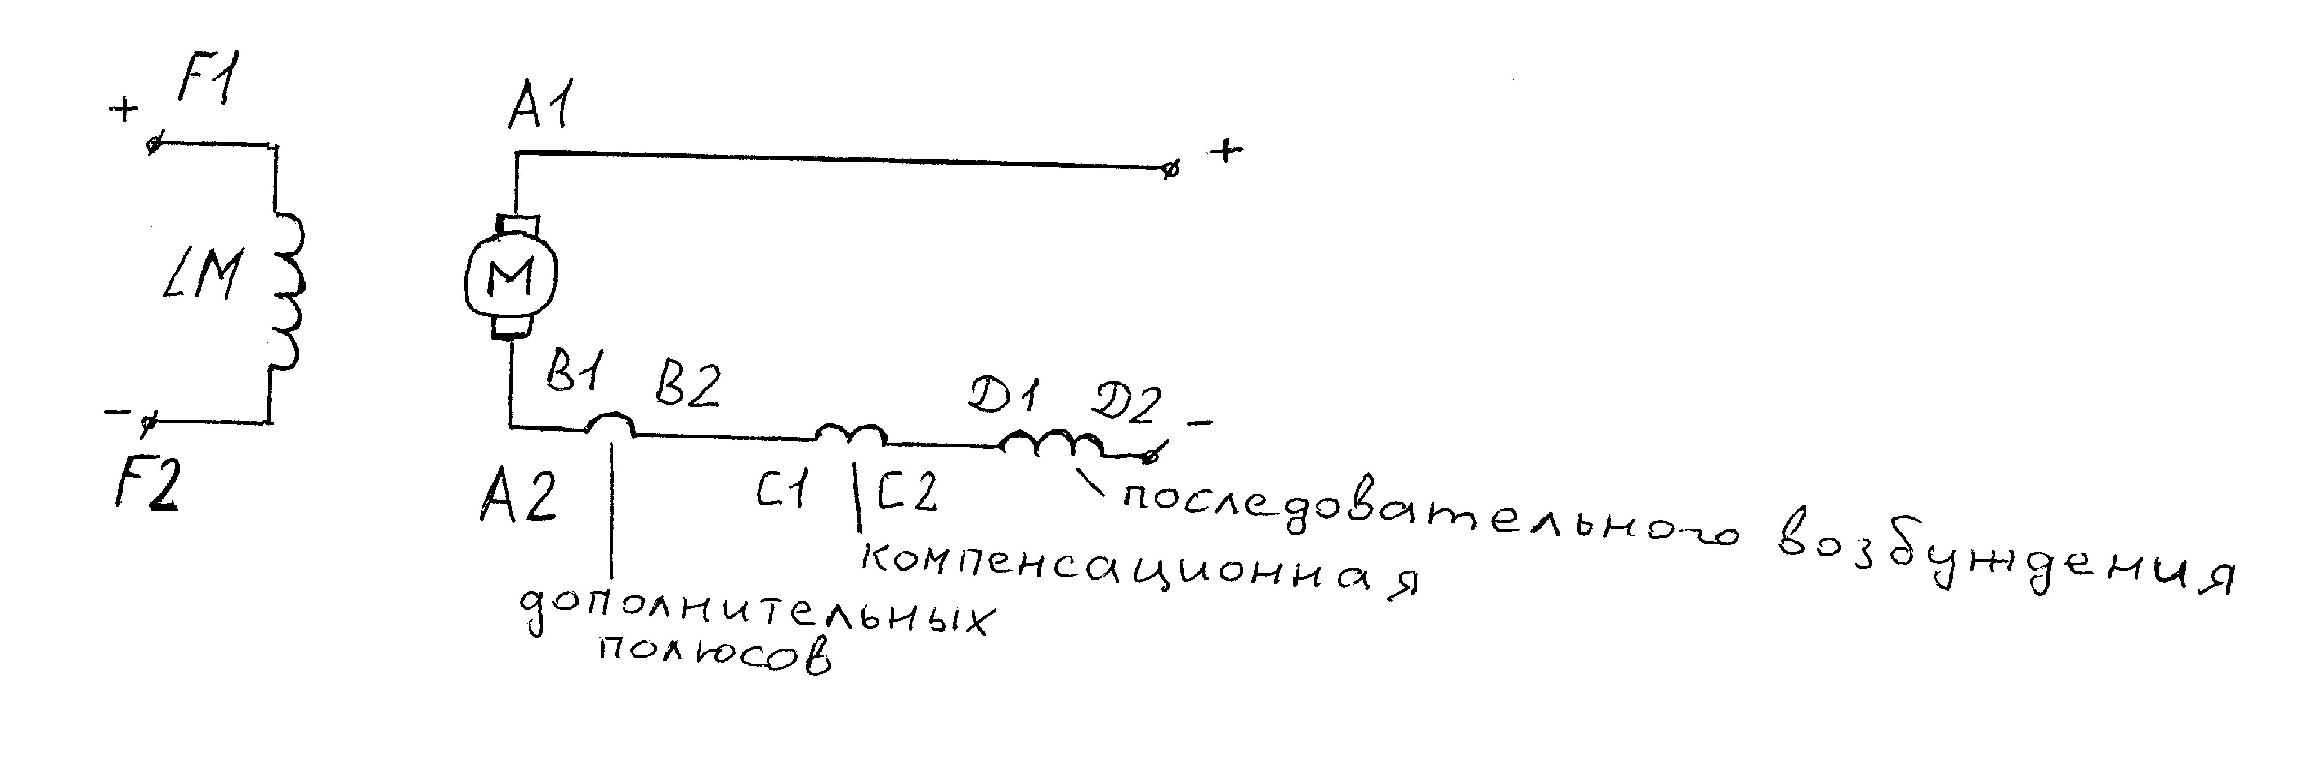 F1
+
A1
+
LM
M
B1 B2
D1 D2
-
-
F2
A2
C1 C2
последовательного возбуждения
компенсационная
дополнительных
полюсов